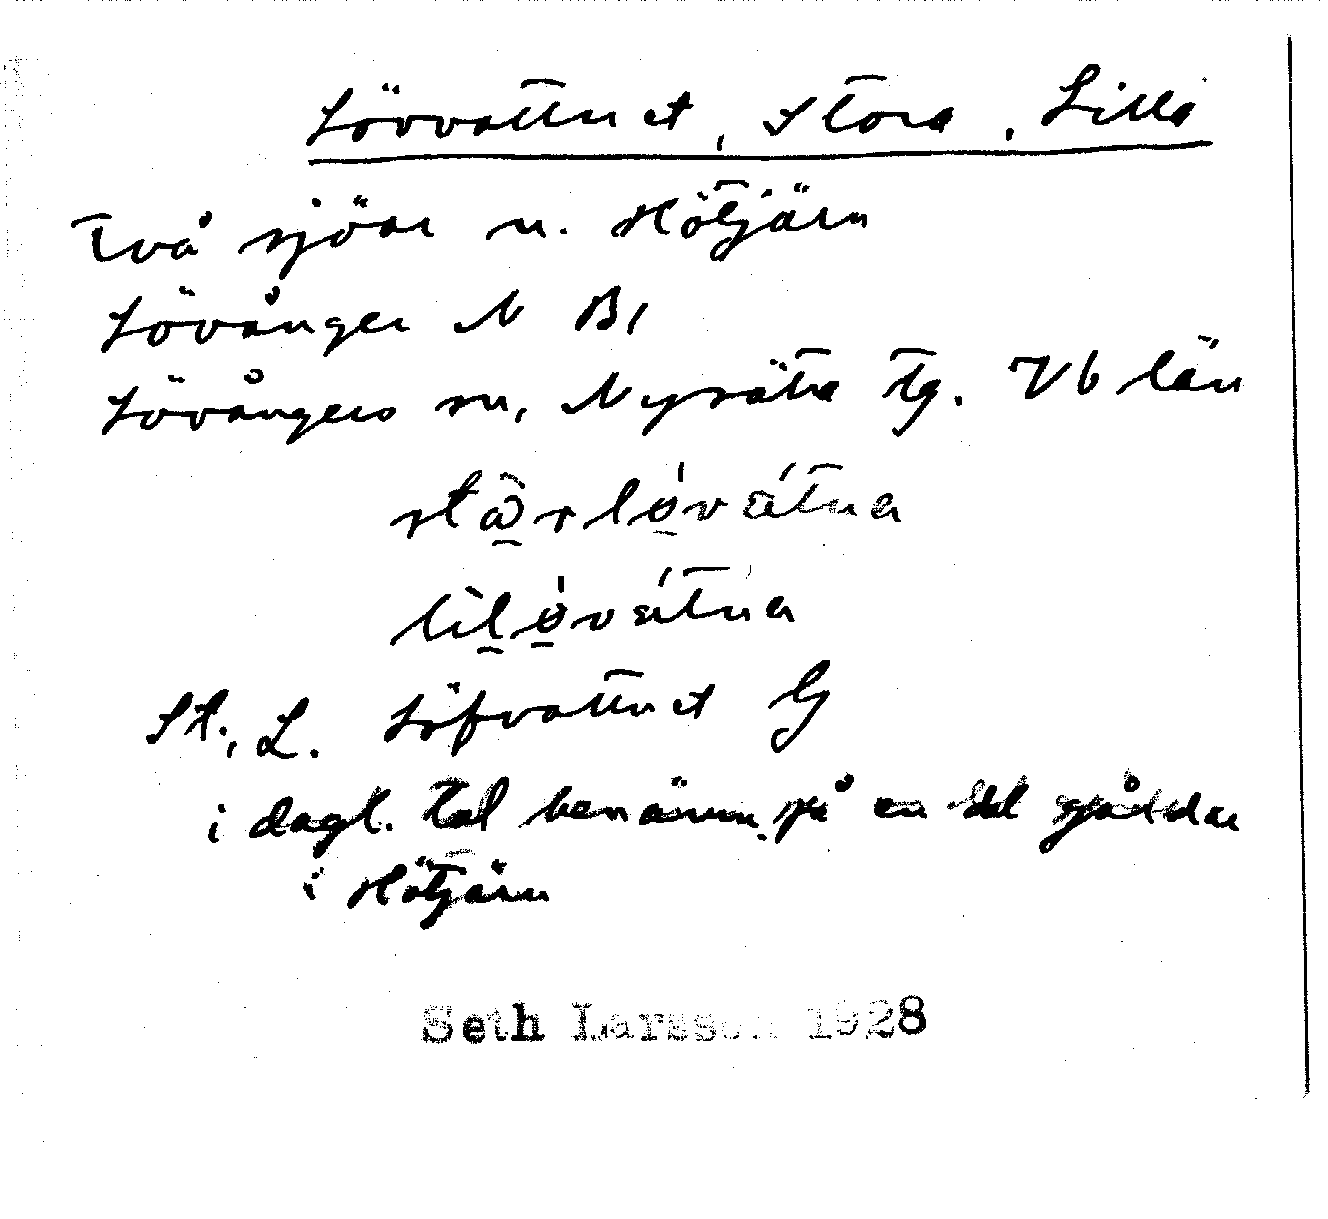 Lövvattnet, Stora, Lilla
Två sjöar n. Hötjärn
Lövånger N B1
Lövångers sn, Nysätra tg. Vb län
lilø̱vátna
St., L. Löfvattnet G
i dagl. tal benämn. på en del
i Hötjärn
Seth Larsson 1928